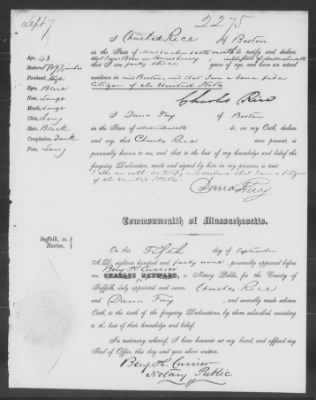 Sept 7
2275
I Charles Rice of Boston
in the State of Massachusetts to testify and declare
that I was Born in
that I am forty three years of age, and am entitled
residence in said Boston, and that I am a bona fide
Citizen of the United States
Charles Rice
Age, 43
Stature, 5 ft 9 1/2 inches
Forehead, High
Eyes, Blue
Nose, Large
Mouth, Large
Chin, Long
Hair, Black
Complexion, Dark
Face, Long
I Dana Fay of Boston
in the State of Massachusetts do, on my Oath, declare
and say, that Charles Rice now present is
personally known to me, and that to the best of my knowledge and belief the
foregoing Declaration, made and signed by him in my presence, is true
I also on oath that I am a citizen
of the United States.
Dana Fay
Commonwealth of Massachusetts.
Suffolk, ss.
Boston.
On this Fifth day of September
A.D. eighteen hundred and forty nine, personally appeared before
me Benj. H. Currier
CHARLES HAYWARD, a Notary Public, for the County of
Suffolk, duly appointed and sworn, Charles Rice
and Dana Fay and severally made solemn
Oath to the truth of the foregoing Declarations, by them subscribed, according
to the best of their knowledge and belief.
In testimony whereof, I have hereunto set my hand, and affixed my
Seal of Office, this day and year above written.
Benj. H. Currier
Notary Public